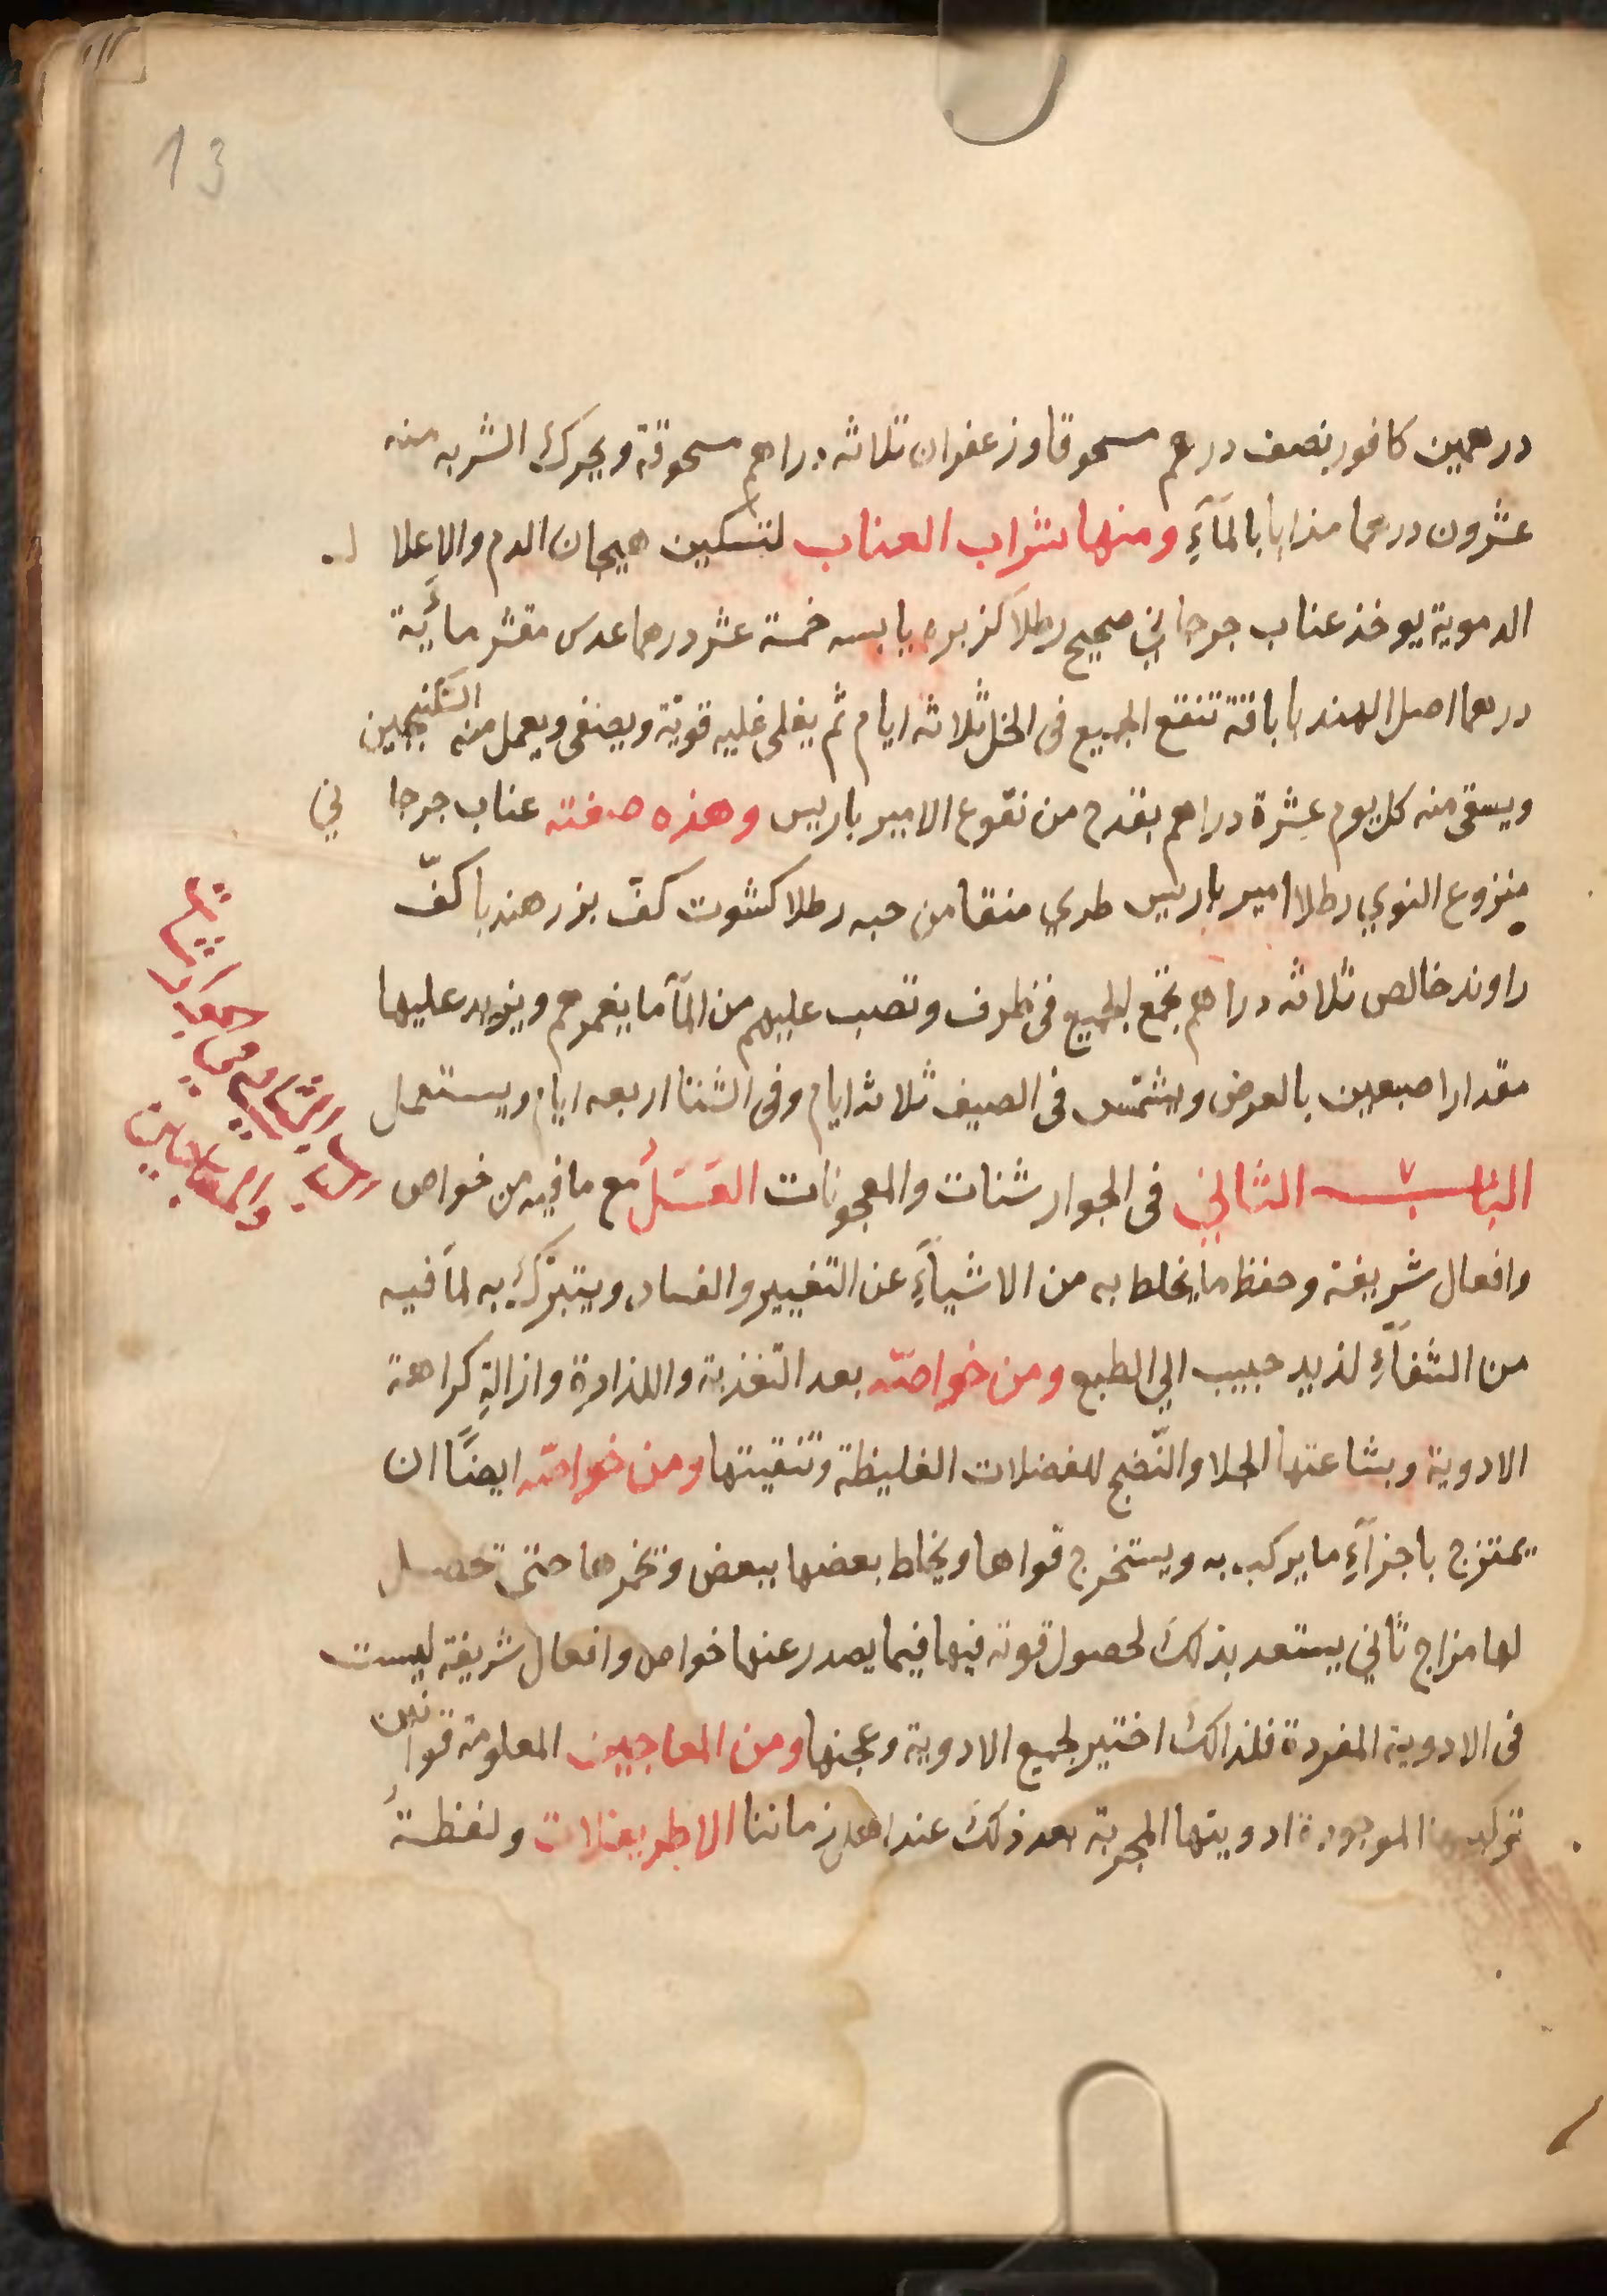 13
درهمين كافور نصف درهم مسحوقا وزعفران ثلاثه دراهم مسحوقة ويحرك الشربه منه
عشرون درهما مذابا بالمآءِ ومنها شراب العناب لتسكين هيجان الدم والاعلا ل
الدموية يوخذ عناب جرجاني صحيح رطلا كزبره يابسه خمسة عشر درهما عدس مقشر مائية
درهما اصل الهندبا باقة تنقع الجميع فى الخل ثلاثه ايام ثم يغلى غليه قوية ويصفى ويعمل منه السكنجبين
ويسقى منه كل يوم عشرة دراهم بقدح من نقوع الامير باريس وهذه صفته عناب جرجا ني
منزوع النوي رطلا امير باريس طري منقا من حبه رطلا كشوت كفّ بزر هندبا كفّ
راوند خالص ثلاثه دراهم تجمع الجميع فى ظرف وتصب عليهم من المآ ما يغمرهم ويزيد عليها
مقدار اصبعين بالعرض ويشمّس فى الصيف ثلاثه ايام وفى الشتا اربعه ايام ويستعمل
الباب الثاني فى الجوارشنات والمعجونات العَسَلُ مع ما فيه من خواص
وافعال شريفة وحفظ ما يخلط به من الاشيآءِ عن التغيير والفساد ويتبرّك به لما فيه
من الشفآءِ لذيد حبيب الي الطبع ومن خواصّه بعد التغذية واللذاذة وازالةِ كراهة
الادوية وبشاعتها الجلا والنّضج للفضلات الغليظة وتنقيتها ومن خواصّه ايضًا ان
يمتزج باجزآءِ ما يركب به ويستخرج قواها ويخلط بعضها ببعض وتخمرها حتى تحصل
لها مزاج ثاني يستعد بذلك لحصول قوته فيها فيما يصدر عنها خواص وافعال شريفة ليست
فى الادوية المفردة فلذالك اختير لجميع الادوية وعجنها ومن المعاجين المعلومة قوانين
تركيبها الموجودة ادويتها المجربة بعد ذلك عند اهل زماننا الاطريفلات ولفظة
الباب الثاني في
والمعاجين